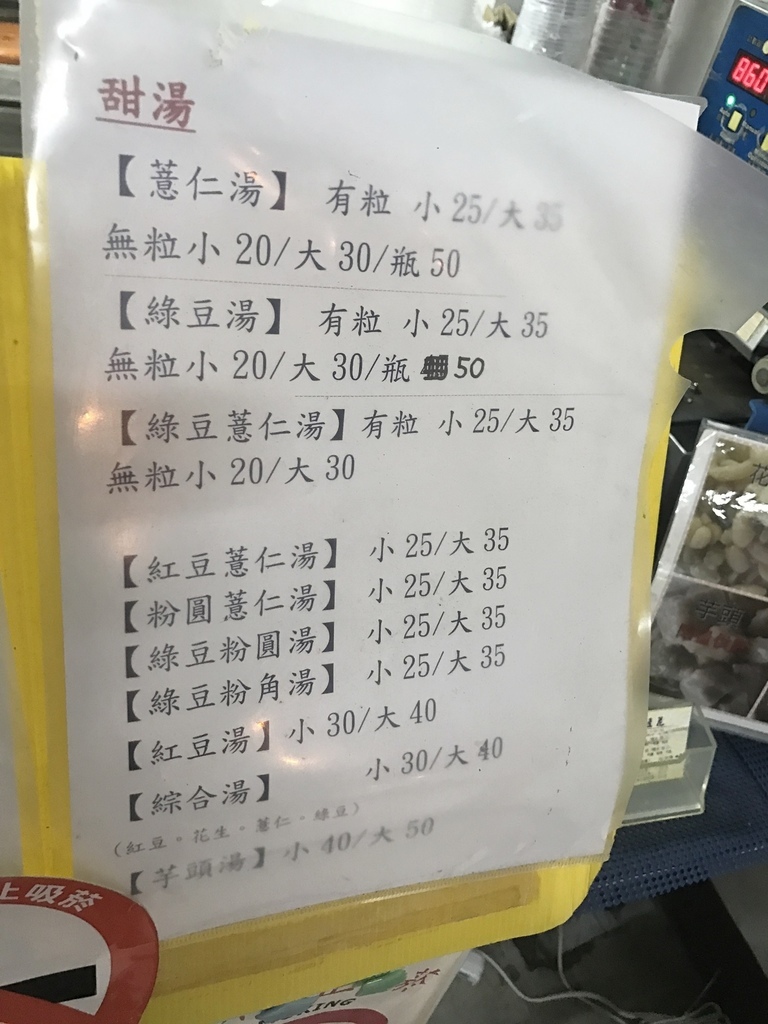 甜湯
【薏仁湯】 有粒 小25/大35
無粒小20/大30/瓶50
【綠豆湯】 有粒 小25/大35
無粒小20/大30/瓶 50
【綠豆薏仁湯】有粒 小25/大35
無粒小20/大30
【紅豆薏仁湯】 小25/大35
【粉圓薏仁湯】 小25/大35
【綠豆粉圓湯】 小25/大35
【綠豆粉角湯】 小25/大35
【紅豆湯】小30/大40
【綜合湯】 小30/大40
(紅豆。花生。薏仁。綠豆)
【芋頭湯】小40/大50
860
花
芋頭
上吸菸
KING